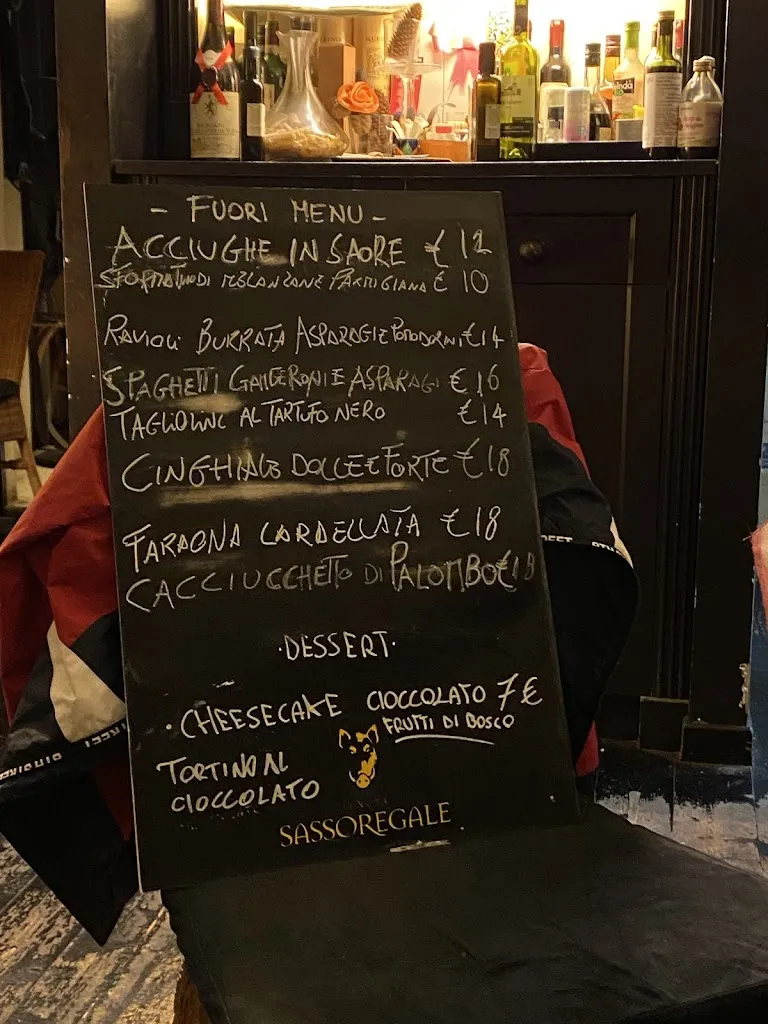 - FUORI MENU -
ACCIUGHE IN SAORE € 12
SFORMATINO DI MELANZANE PARMIGIANA € 10
RAVIOLI BURRATA ASPARAGI E POMODORINI € 14
SPAGHETTI GAMBERONI E ASPARAGI € 16
TAGLIOLINI AL TARTUFO NERO € 14
CINGHIALE DOLCE E FORTE € 18
FARAONA LARDELLATA € 18
CACCIUCCHETTO DI PALOMBO € 18
·DESSERT·
· CHEESECAKE CIOCCOLATO 7 €
FRUTTI DI BOSCO
TORTINO AL
CIOCCOLATO
SASSOREGALE